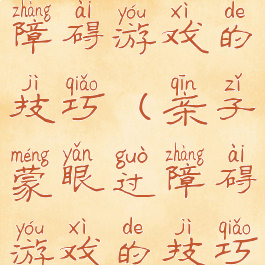 zhàng ài yóu xì de
障碍游戏的
jì qiǎo qīn zǐ
技巧（亲子
méng yǎn guò zhàng ài
蒙眼过障碍
yóu xì de jì qiǎo
游戏的技巧